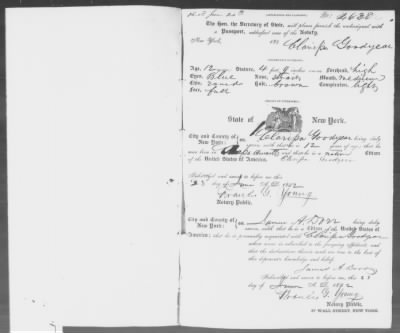 No. 2638
The Hon. the Secretary of State, will please furnish the undersigned with
a Passport, addressed care of the Notary.
New York, 185 Clarissa Goodyear
Age, 12 Stature, 4 feet 9 inches Forehead, high
Eyes, Blue Nose, short Mouth, medium
Chin, round Hair, brown Complexion, light
Face, full
State of New York.
City and County of New York: ss. I Clarissa Goodyear being duly
sworn, doth depose that she is 12 years of age; that she
was born in and that she is a native Citizen
of the United States of America. Clarissa Goodyear
Subscribed and sworn to before me this
23 day of June A.D. 1852
Francis G. Young
Notary Public.
City and County of New York: ss. James A. Dorr being duly
sworn, doth depose that he is a Citizen of the United States of
America; that he is personally acquainted with Clarissa Goodyear
who is described in the foregoing affidavit, and
that the declarations therein made are true to the best of
this deponent's knowledge and belief.
James A. Dorr
Subscribed and sworn to before me, this 23
day of June A.D. 1852
Francis G. Young
Notary Public.
57 WALL STREET, NEW YORK.